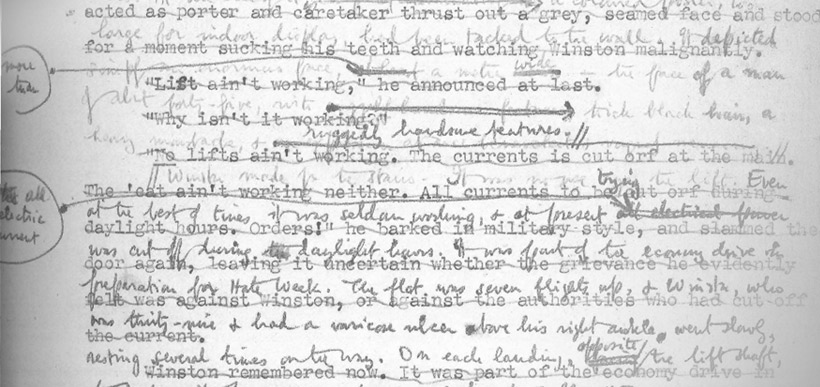 acted as porter and caretaker thrust out a grey, seamed face and stood
large for indoor display had been tacked to the wall. It depicted
for a moment sucking his teeth and watching Winston malignantly.
more than
simply an enormous face, a metre wide - the face of a man
"Lift ain't working," he announced at last.
of about forty-five, with thick black hair, a
"Why isn't it working?"
heavy moustache & ruggedly handsome features. //
"No lifts ain't working. The currents is cut orf at the main.
// Winston made for the stairs. It was no use trying the lift. Even
The 'eat ain't working neither. All currents to be cut orf during
the electric current
at the best of times it was seldom working, & at present all electrical power
daylight hours. Orders!" he barked in military style, and slammed the
was cut off during the daylight hours. It was part of the economy drive in
door again, leaving it uncertain whether the grievance he evidently
preparation for Hate Week. The flat was seven flights up, & Winston, who
felt was against Winston, or against the authorities who had cut off
was thirty-nine & had a varicose ulcer above his right ankle, went slowly,
the current.
resting several times on the way. On each landing, opposite the lift shaft,
Winston remembered now. It was part of the economy drive in